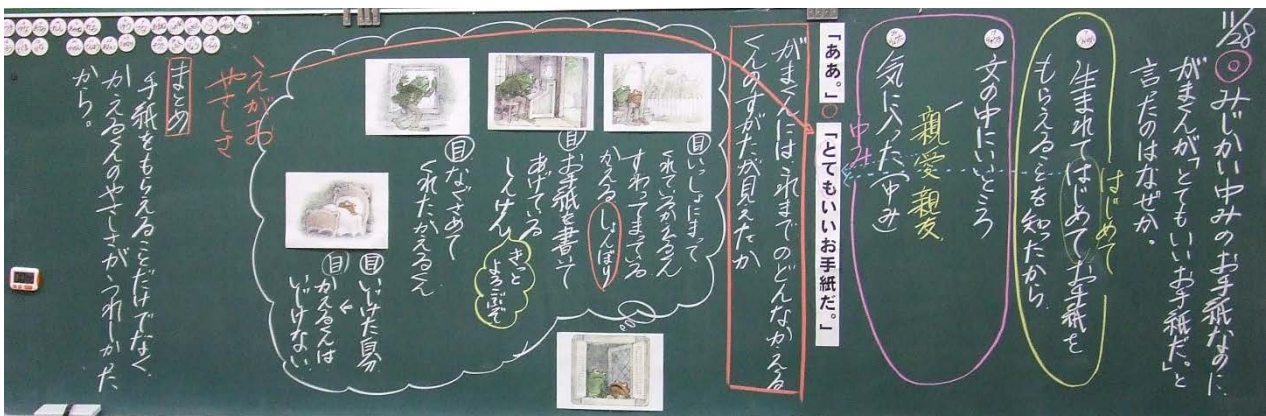 11/28
◎みじかい中みのお手紙なのに、
がまくんが「とてもいいお手紙だ。」と
言ったのはなぜか。
はじめて
生まれてはじめてお手紙を
もらえることを知ったから
文の中にいいところ
親愛 親友
気に入った(中み)
中み
「ああ。」
「とてもいいお手紙だ。」
がまくんには、これまでのどんなかえる
くんのすがたが見えたか
目いっしょにまって
くれているかえるくん
すわってまっている
かえる しょんぼり
目お手紙を書いて
あげている
しんけん
きっと
よろこぶぞ
目なぐさめて
くれたかえるくん
目いじけた自分
目かえるくんは
いじけない
えがお
やさしさ
まとめ
手紙をもらえることだけでなく、
かえるくんのやさしさがうれしかった
から。